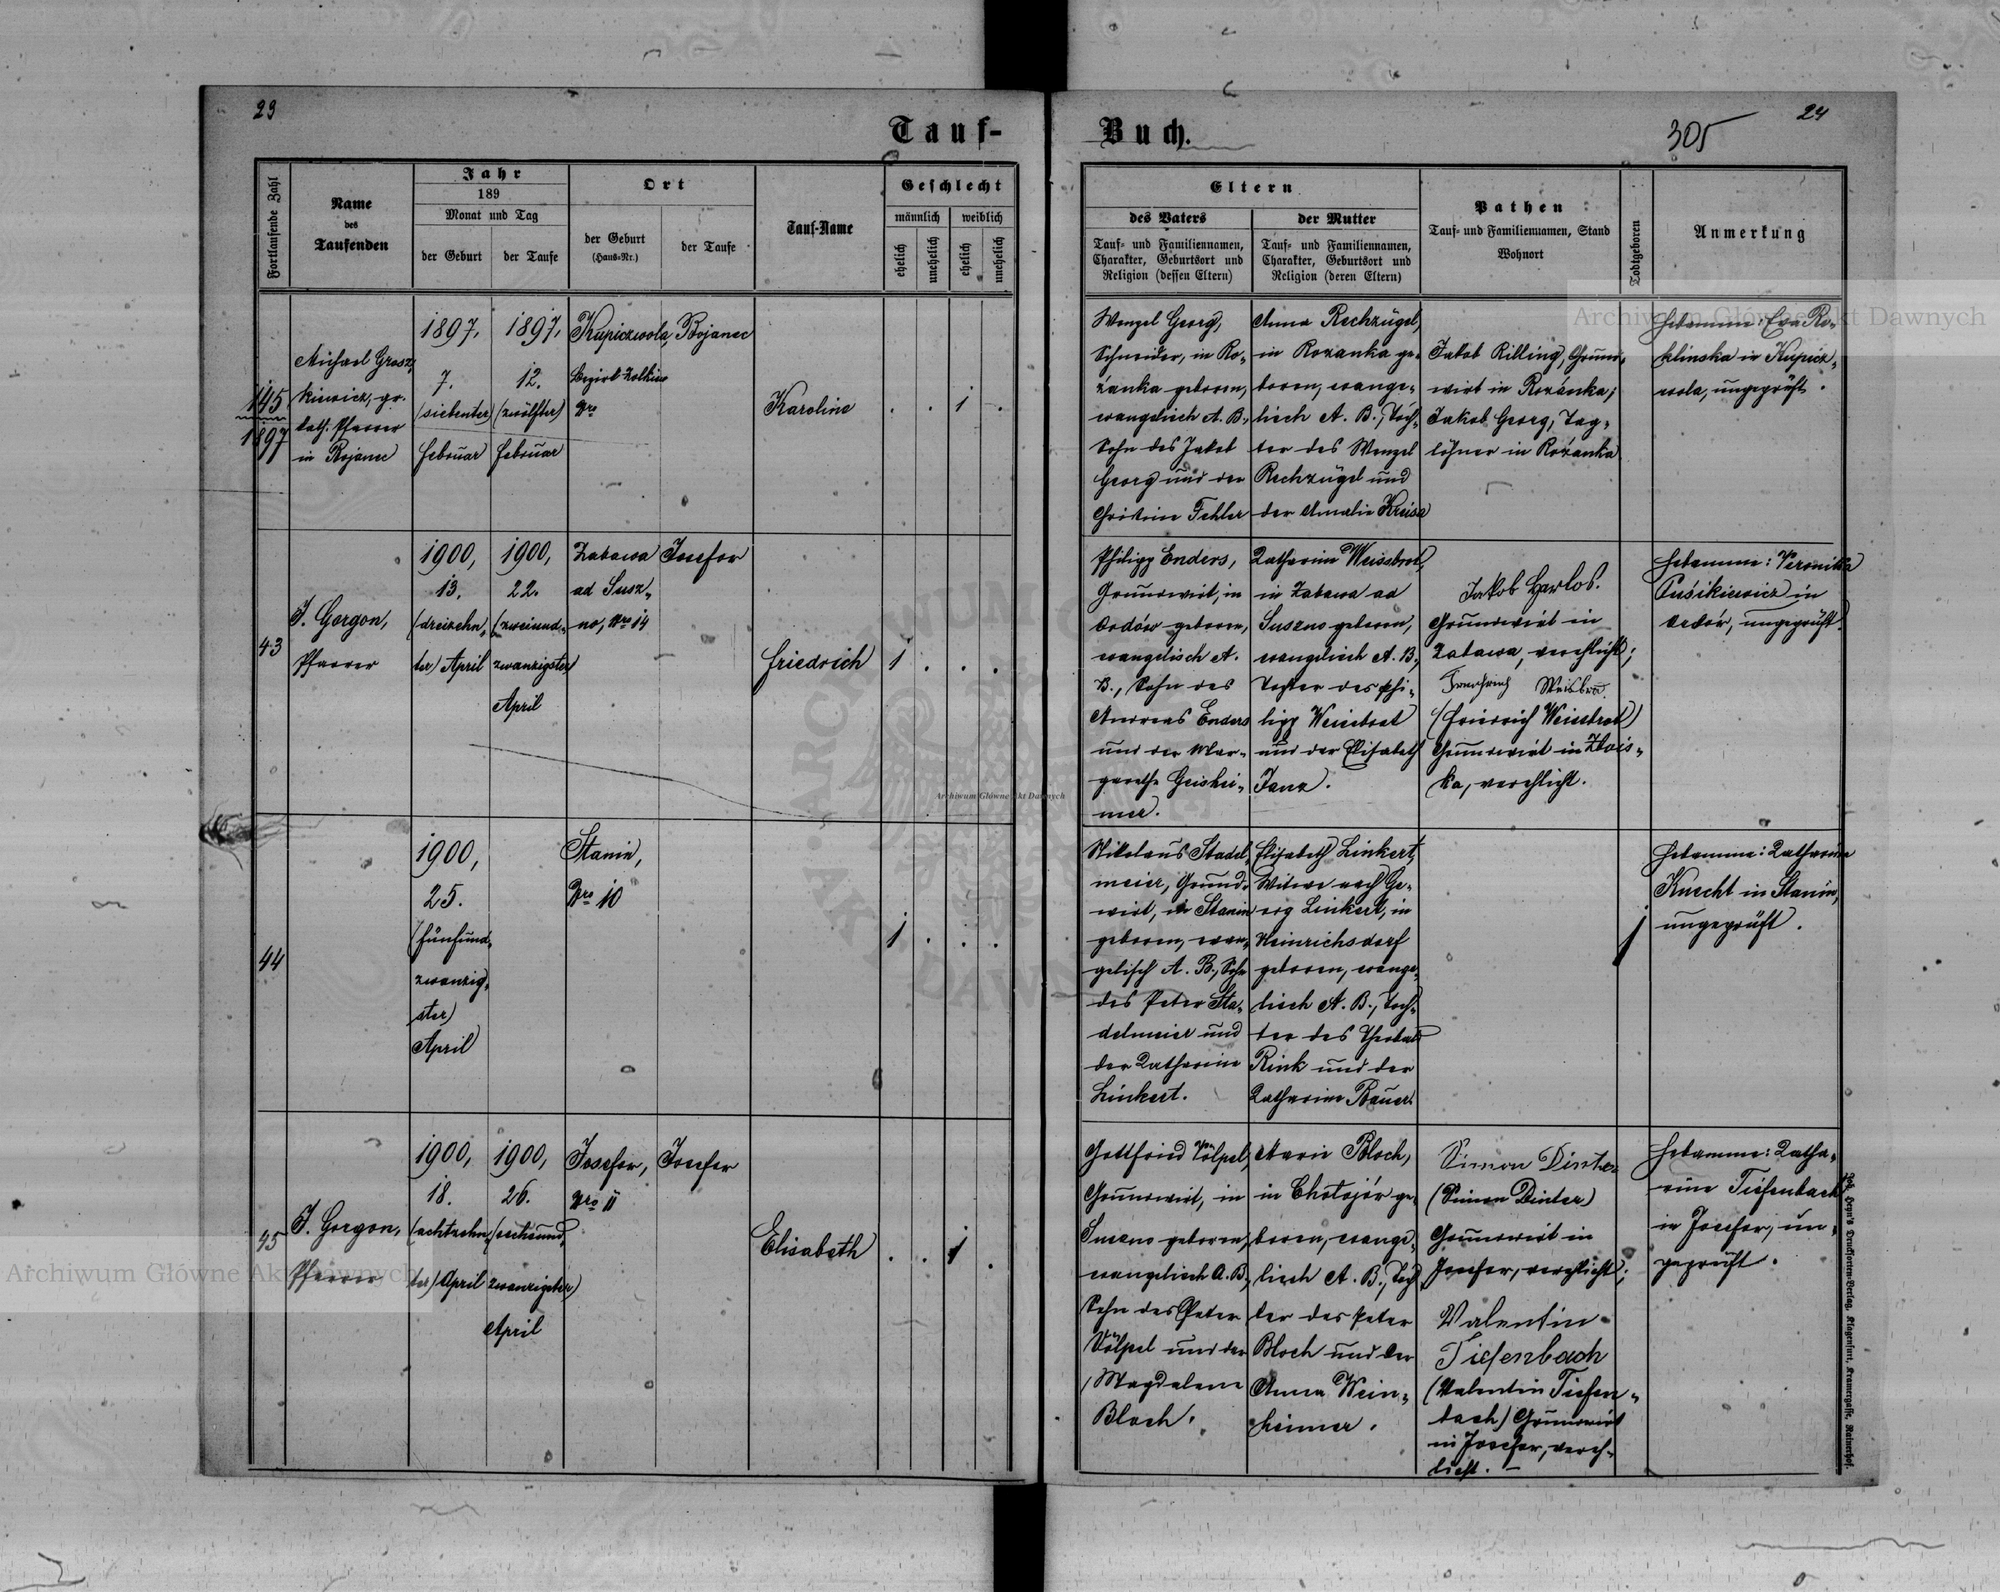 23
24
305
Tauf-
Buch.
Fortlaufende Zahl
Name
des
Taufenden
Jahr
189
Monat und Tag
der Geburt
der Taufe
Ort
der Geburt
(Haus-Nr.)
der Taufe
Tauf-Name
Geschlecht
männlich
weiblich
ehelich
unehelich
ehelich
unehelich
Eltern
des Vaters
Tauf- und Familiennamen,
Charakter, Geburtsort und
Religion (dessen Eltern)
der Mutter
Tauf- und Familiennamen,
Charakter, Geburtsort und
Religion (deren Eltern)
Pathen
Tauf- und Familiennamen, Stand
Wohnort
Todtgeboren
Anmerkung
145
1897
Michael Grosz-
kiewicz, gr.
kath. Pfarrer
in Bojanec
1897,
7.
(siebenter)
Februar
1897,
12.
(zwölfter)
Februar
Kupiczwola,
Bezirk Zolkiew
Nro
Bojanec
Karoline
. . 1 .
Wenzel Georg,
Schneider, in Ro-
zanka geboren,
evangelisch A. B.,
Sohn des Jakob
Georg und der
Christine Fehler
Anna Rechzügel,
in Rozanka ge-
boren, evange-
lisch A. B., Toch-
ter des Wenzel
Rechzügel und
der Amalie Kreisa
Jakob Rilling, Grund-
wirt in Rozánka;
Jakob Georg, Tag-
löhner in Rózanka
Hebamme: Eva Re-
klinska in Kupicz-
wola, ungeprüft.
43
J. Gorgon,
Pfarrer
1900,
13.
(dreizehn-
ter) April
1900,
22.
(zweiund-
zwanzigster)
April
Zabawa
ad Susz-
no, Nro 14
Josefow
Friedrich
1 . . .
Philipp Enders,
Grundwirt, in
geboren,
evangelisch A.
B., Sohn des
Andreas Enders
und der Mar-
garethe Geishei-
mer.
Katharina Weissbrot,
in Zabawa ad
Suszno geboren,
evangelisch A. B.,
Tochter des Phi-
lipp Weissbrot
und der Elisabeth
Janz.
Jakob Harlos.
Grundwirt in
Zabawa, verehlicht;
(Friedrich Weissbrot)
Grundwirt in Zbois-
ka, verehlicht.
Hebamme: Veronika
Pusikiewicz in
ungeprüft.
44
1900,
25.
(fünfund-
zwanzig-
ster)
April
Stanin,
Nro 10
1 . . .
Nikolaus Stadel-
meier, Grund-
wirt, in Stanin
geboren, evan-
gelisch A. B., Sohn
des Peter Sta-
delmeier und
der Katharina
Linkert.
Elisabeth Linkert,
Witwe nach Ge-
org Linkert, in
Heinrichsdorf
geboren, evange-
lisch A. B., Toch-
ter des Theobald
Rink und der
Katharina Bauer.
1
Hebamme: Katharina
Knecht in Stanin,
ungeprüft.
45
J. Gorgon,
Pfarrer
1900,
18.
(achtzehn-
ter) April
1900,
26.
(sechsund-
zwanzigster)
April
Josefow,
Nro 11
Josefow
Elisabeth
. . 1 .
Gottfried Völpel,
Grundwirt, in
Suszno geboren,
evangelisch A. B.,
Sohn des Peter
Völpel und der
Magdalena
Bloch.
Marie Bloch,
in Chotojów ge-
boren, evange-
lisch A. B., Toch-
ter des Peter
Bloch und der
Anna Wein-
heimer.
Simon Dinter
(Simon Dinter)
Grundwirt in
Josefow, verehlicht;
Valentin
Tiefenbach
(Valentin Tiefen-
bach) Grundwirt
in Josefow, vereh-
licht. –
Hebamme: Katha-
rina Tiefenbach
in Josefow, un-
geprüft.
Joh. Leon's Drucksorten-Verlag, Klagenfurt, Kramergasse, Rainerhof.
Archiwum Główne Akt Dawnych
Archiwum Główne Akt Dawnych
Archiwum Główne Akt Dawnych